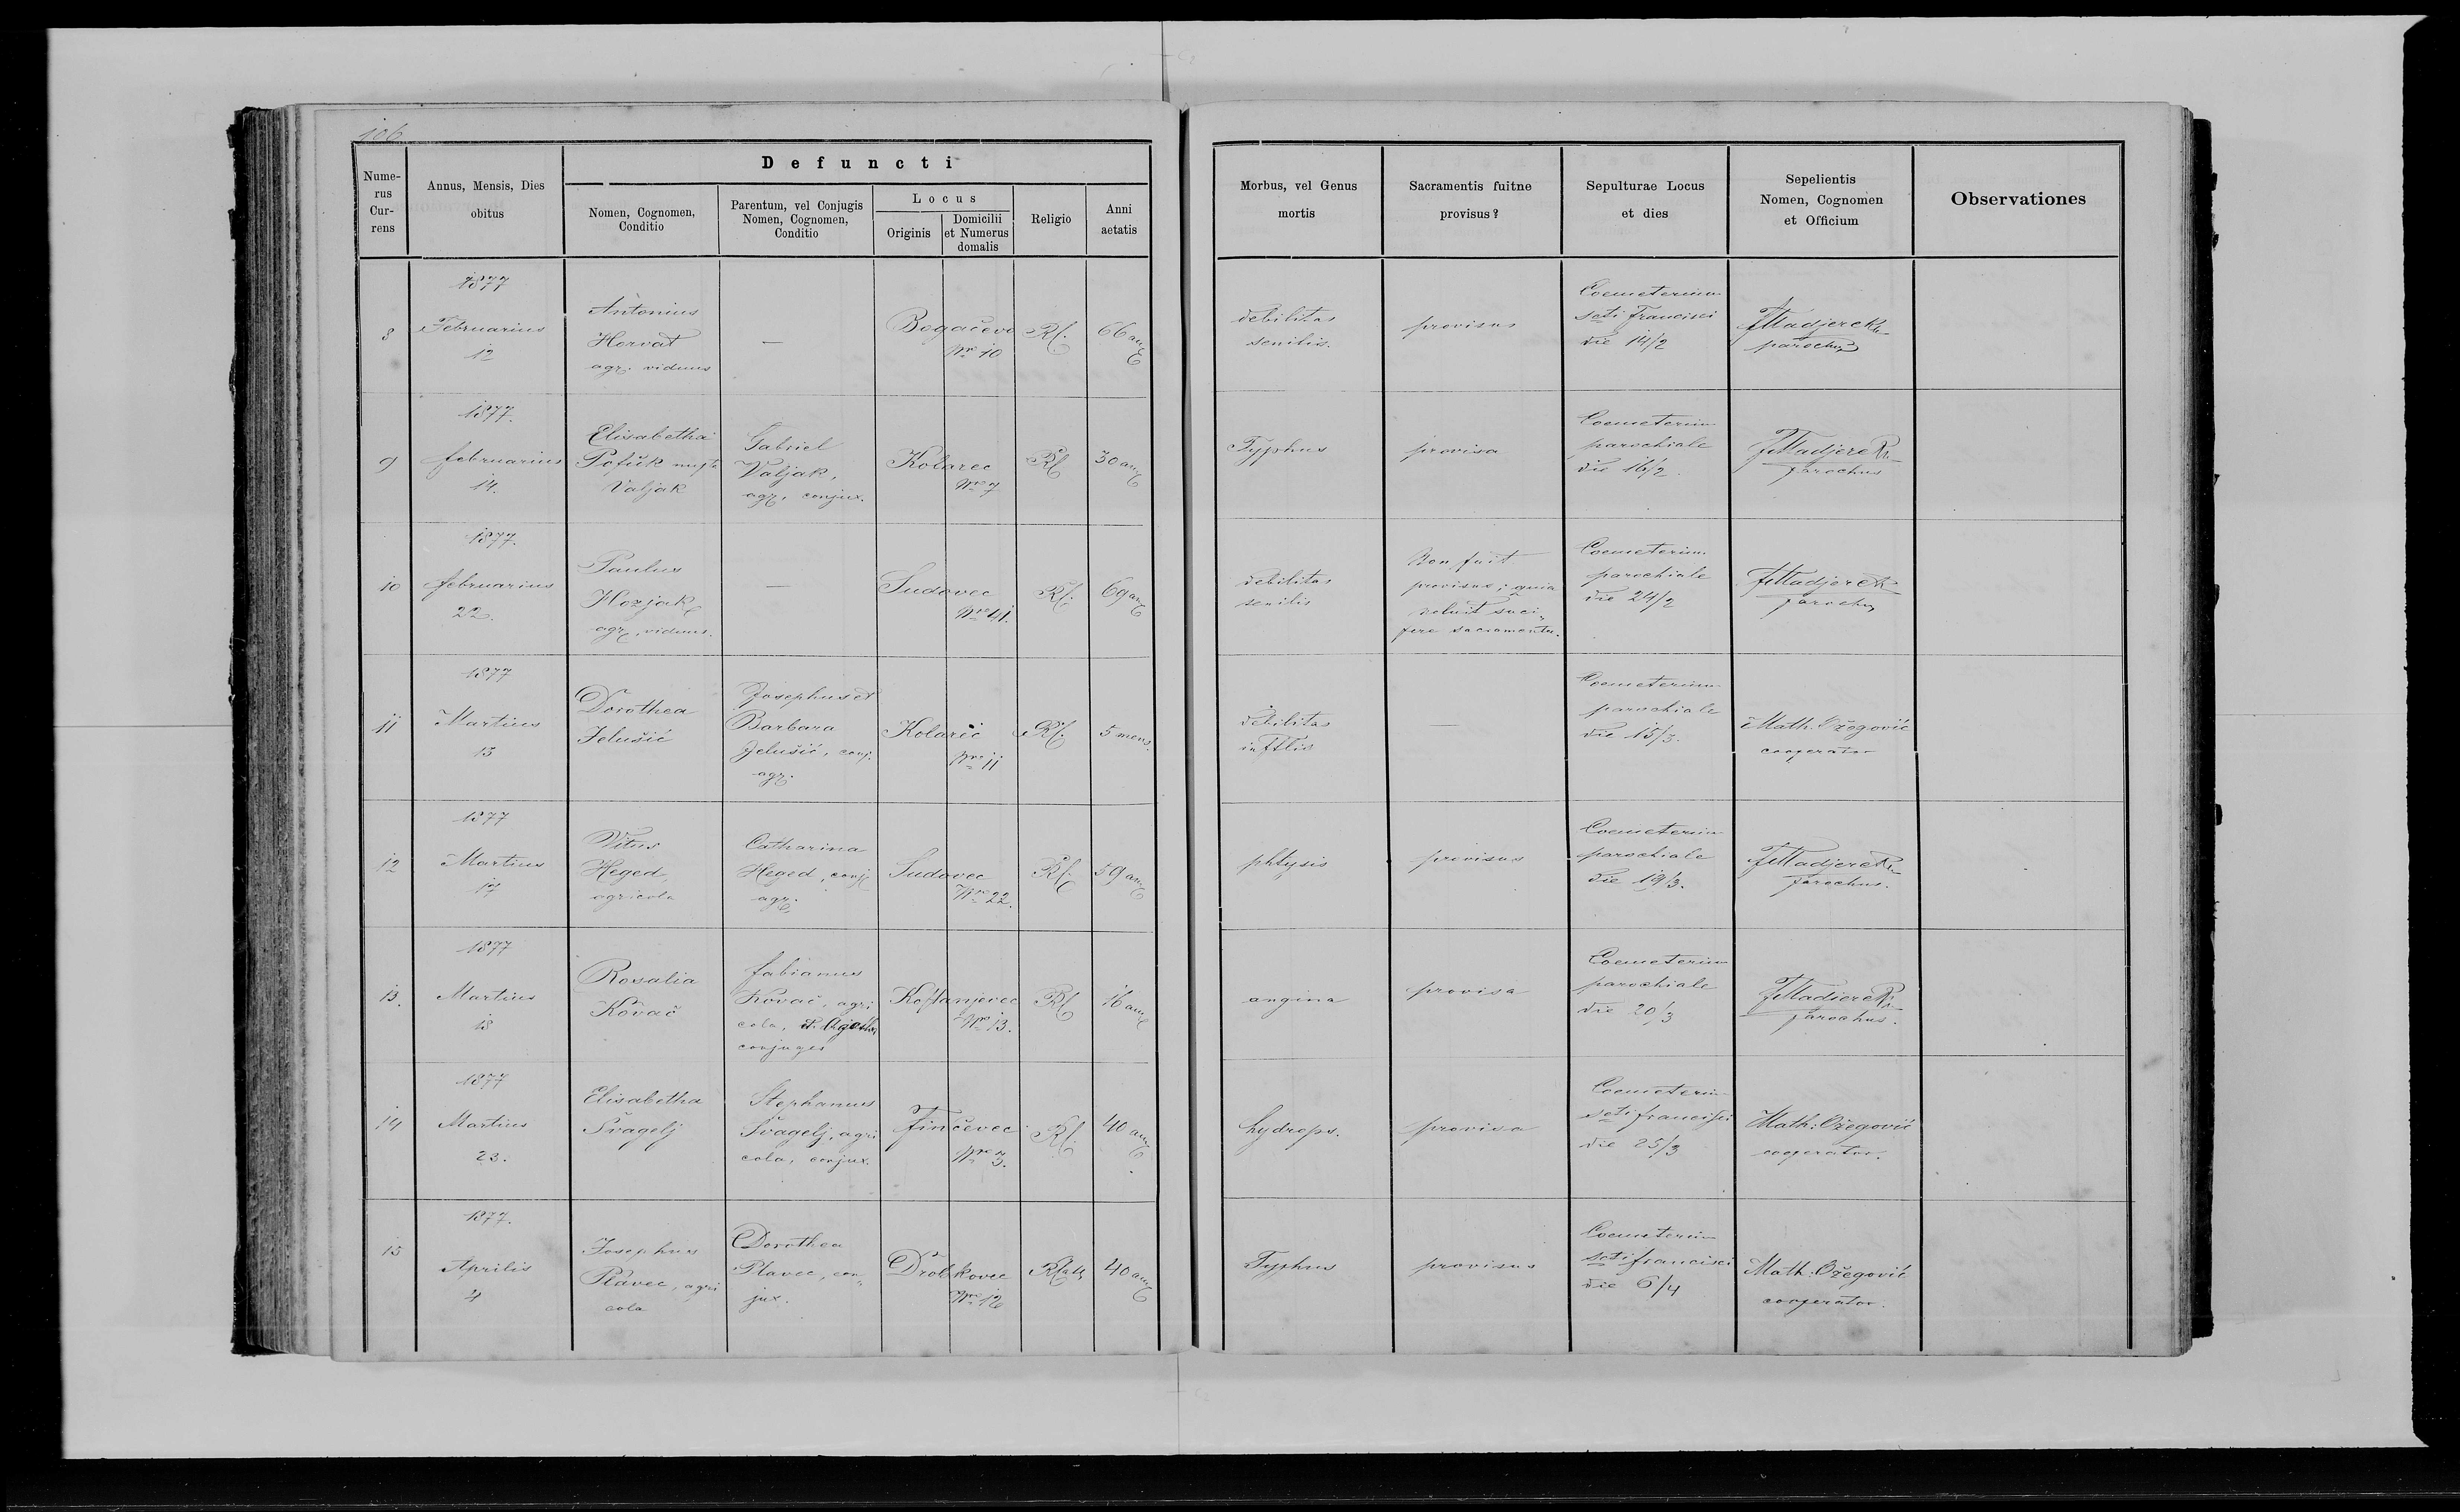 106
Defuncti
Nume-
rus
Cur-
rens
Annus, Mensis, Dies
obitus
Nomen, Cognomen,
Conditio
Parentum, vel Conjugis
Nomen, Cognomen,
Conditio
Locus
Originis
Domicilii
et Numerus
domalis
Religio
Anni
aetatis
Morbus, vel Genus
mortis
Sacramentis fuitne
provisus?
Sepulturae Locus
et dies
Sepelientis
Nomen, Cognomen
et Officium
Observationes
8
1877
Februarius
12
Antonius
Horvat
agr. viduus
—
Bogačevo
Nro 10
Rc.
66 an
debilitas
senilis.
provisus
Coemeterium
scti Francisci
die 14/2
FMadjerek
parochus
9
1877.
februarius
14.
Elisabetha
Valjak
Gabriel
Valjak,
agr, conjux.
Kolarec
Nro 7
Rc
30 an
Typhus
provisa
Coemeterium
parochiale
die 16/2.
FMadjerek
parochus
10
1877.
februarius
22.
Paulus
Hozjak
agr, viduus.
—
Sudovec
Nro 41.
Rc.
69 an
debilitas
senilis
Non fuit
provisus; quia
noluit susci-
pere sacramenta.
Coemeterium
parochiale
die 24/2
FMadjerek
parochus
11
1877
Martius
13
Dorothea
Jelušić
Josephus et
Barbara
Jelušić, conj.
agr.
Kolarić
Nro 11
Rc.
5 mens.
debilitas
—
Coemeterium
parochiale
die 15/3.
Math. Ožegović
cooperator
12
1877
Martius
17
Vitus
Heged,
agricola
Catharina
Heged, conj
agr.
Sudovec
Nro 22.
Rc.
59 an
phtysis
provisus
Coemeterium
parochiale
die 19/3.
FMadjerek
parochus.
13.
1877
Martius
18
Rosalia
Kovač
fabianus
Kovač, agri
cola, et Agatha
conjuges
Koštanjevec
Nro 13.
Rc
16 an
angina
provisa
Coemeterium
parochiale
die 20/3
FMadjerek
parochus.
14
1877
Martius
23.
Elisabetha
Švagelj
Stephanus
Švagelj, agri
cola, conjux.
Finčevec
Nro 3.
Rc.
40 an
hydrops.
provisa
Coemeterium
scti francisci
die 25/3
Math: Ožegović
cooperator.
15
1877.
Aprilis
4
Josephus
Plavec, agri
cola
Dorothea
Plavec, con-
jux.
Drobkovec
Nro 12
40 an
Typhus
provisus
Coemeterium
scti francisci
die 6/4
Math: Ožegović
cooperator.